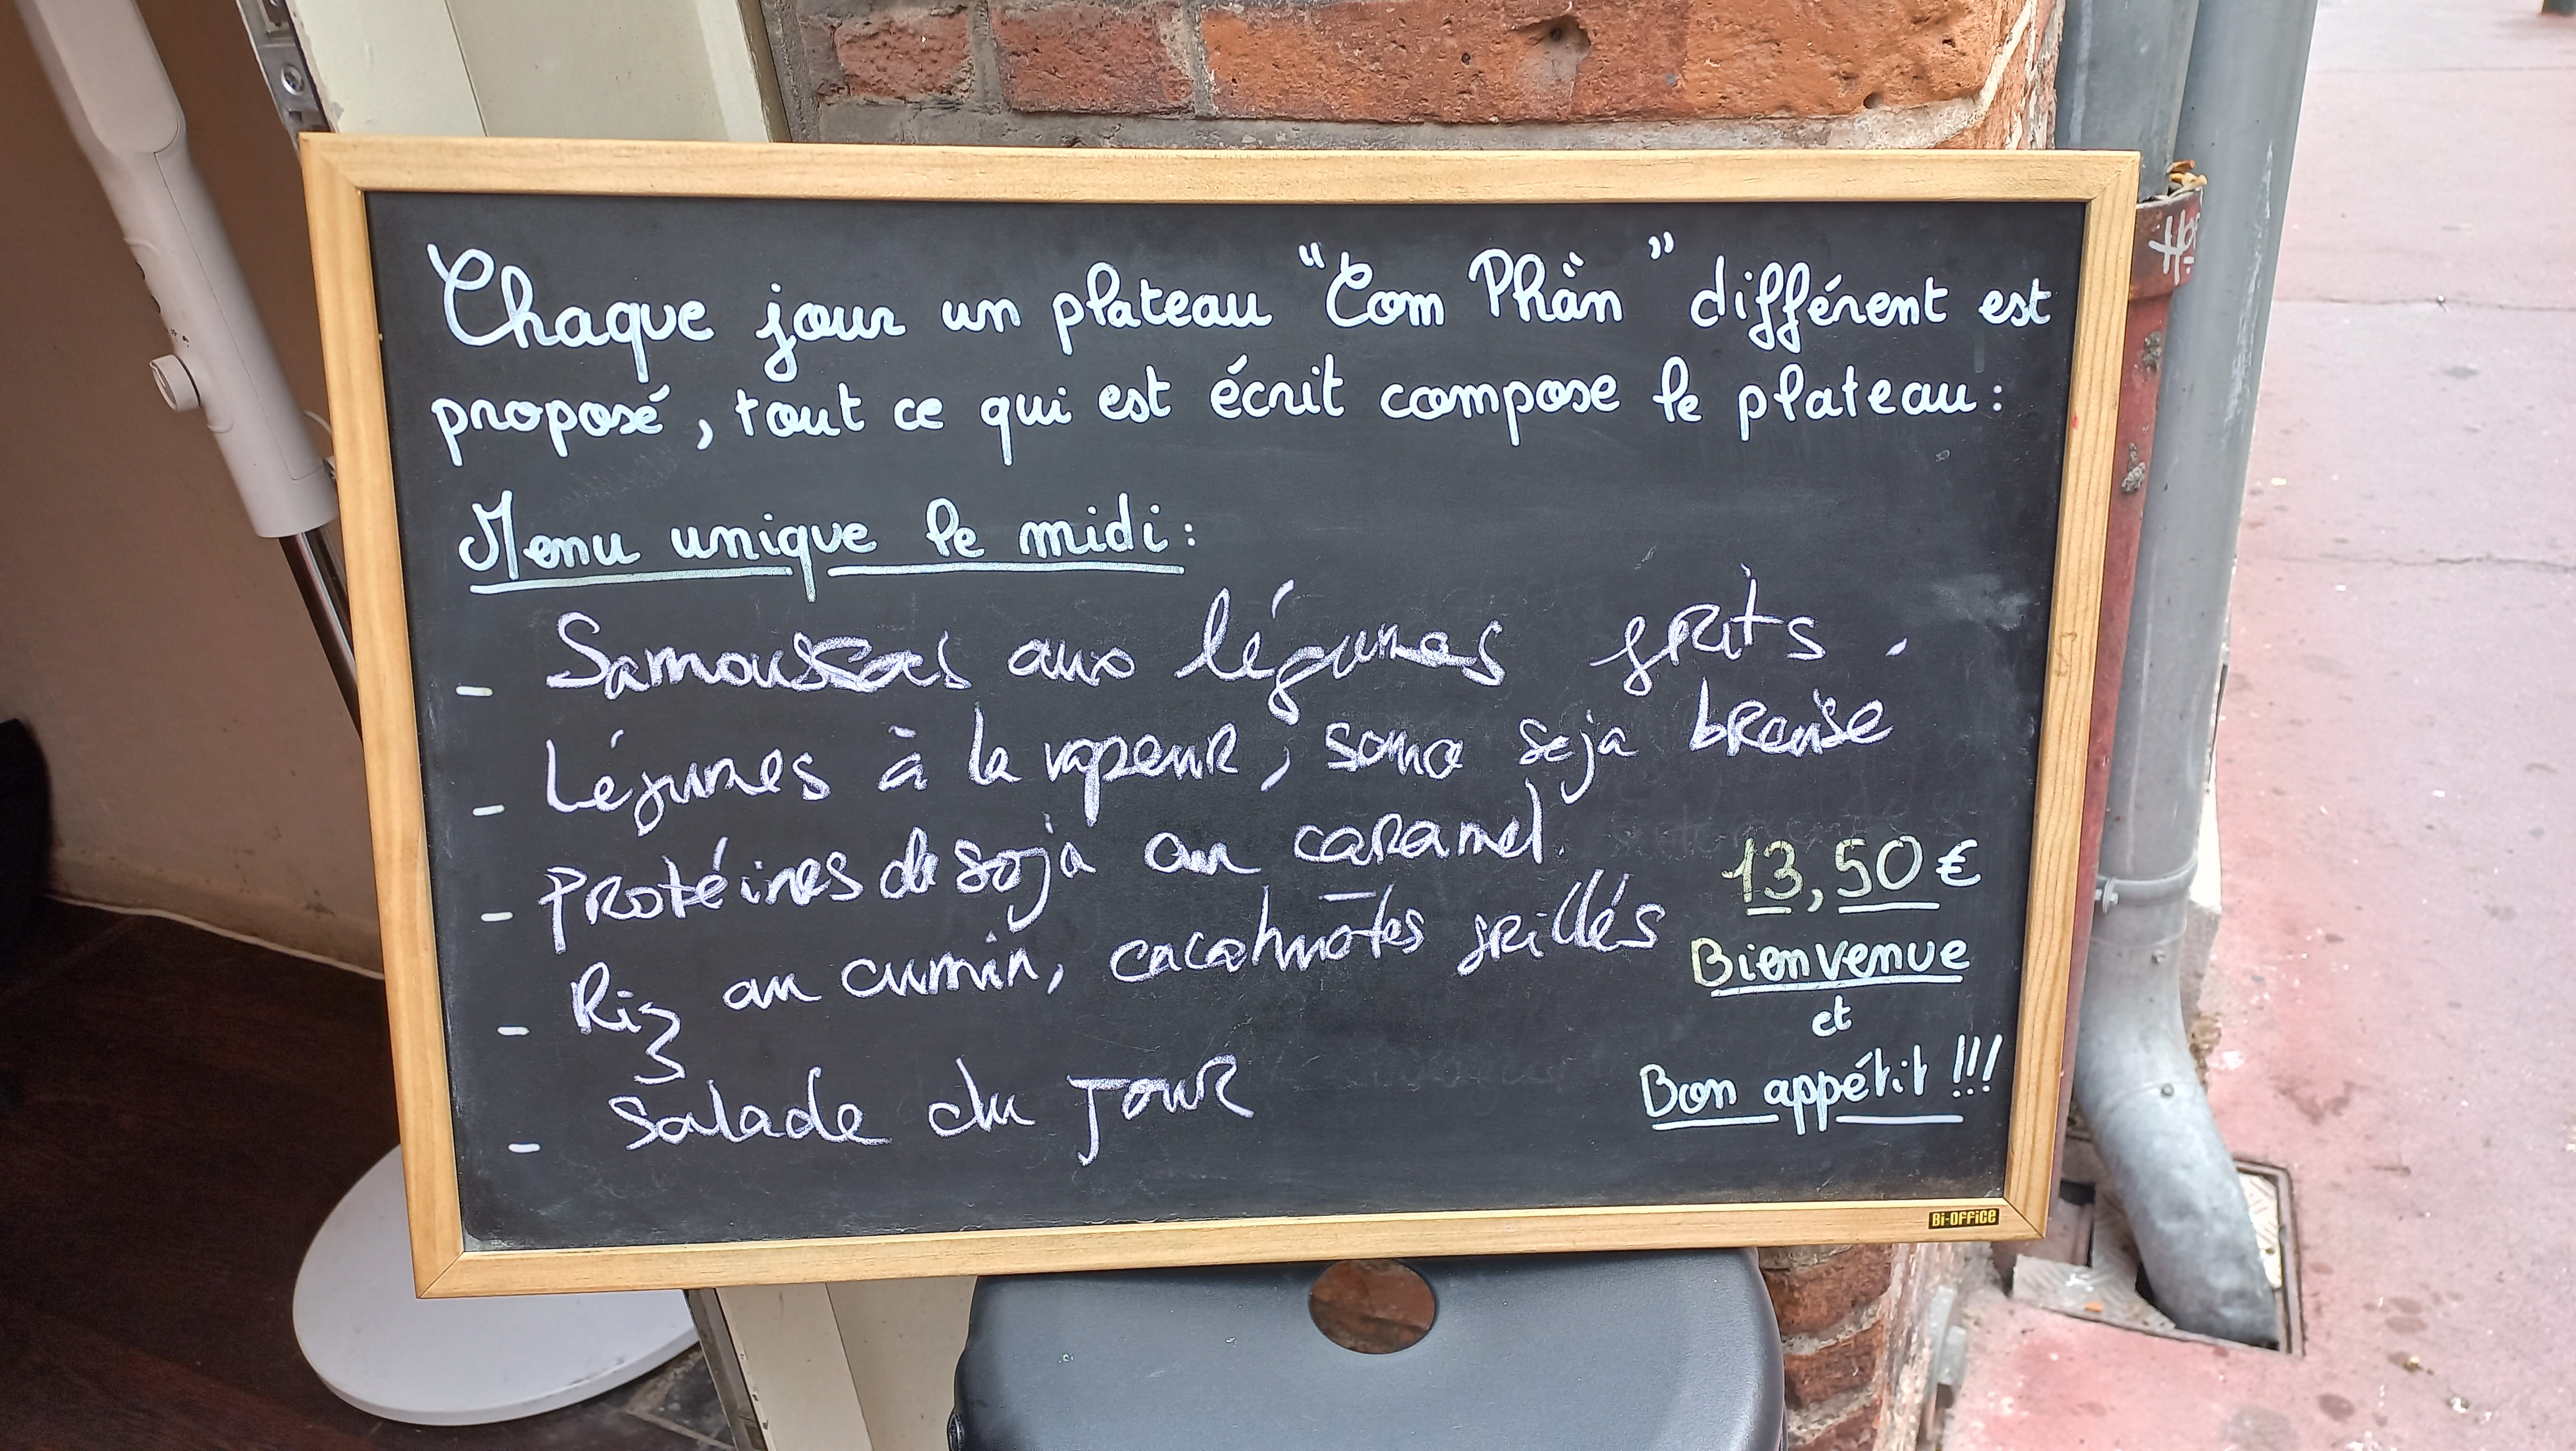 Chaque jour un plateau "Com Phân" différent est
proposé, tout ce qui est écrit compose le plateau :
Menu unique le midi :
- Samoussas aux légumes frits.
- Légumes à la vapeur, soja braisé
- Protéines de soja au caramel.
- Riz au cumin, cacahuètes grillés
- Salade du jour
13,50 €
Bienvenue
et
Bon appétit !!!
Bi-OFFiCE